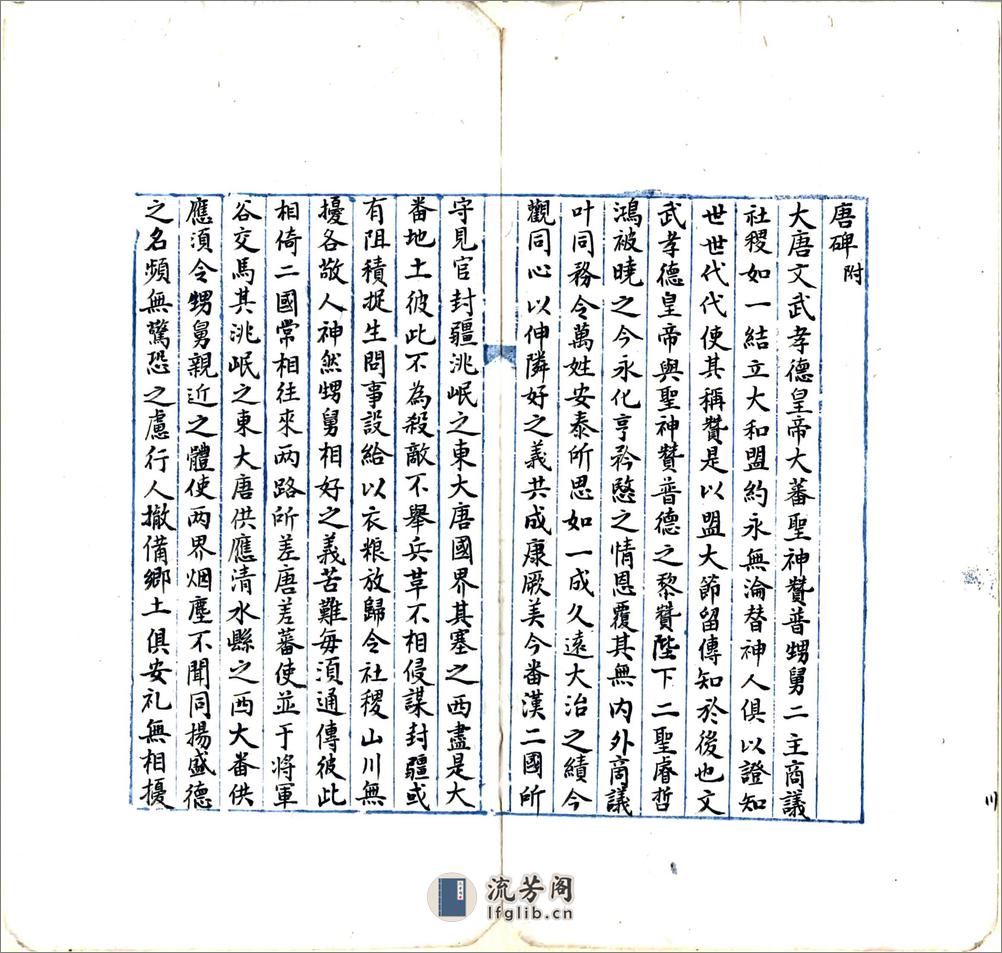 唐碑附
大唐文武孝德皇帝大蕃聖神贊普甥舅二主商議
社稷如一結立大和盟約永無淪替神人俱以證知
世世代代使其稱贊是以盟大節留傳知於後也文
武孝德皇帝與聖神贊普德之黎贊陛下二聖睿哲
鴻被曉之今永化亨矜愍之情恩覆其無內外商議
叶同務令萬姓安泰所思如一成久遠大治之績今
觀同心以伸隣好之義共成康厥美今畨漢二國所
守見官封疆洮岷之東大唐國界其塞之西盡是大
畨地土彼此不為殺敵不舉兵草不相侵謀封疆或
有阻積捉生問事設給以衣粮放歸令社稷山川無
擾各敬人神然甥舅相好之義苦難每須通傳彼此
相倚二國常相往來两路所差唐差蕃使並于将軍
谷交馬其洮岷之東大唐供應清水縣之西大畨供
應須令甥舅親近之體使两界烟塵不聞同揚盛德
之名頻無驚恐之慮行人撤備鄉土俱安礼無相擾
流芳阁
lfglib.cn